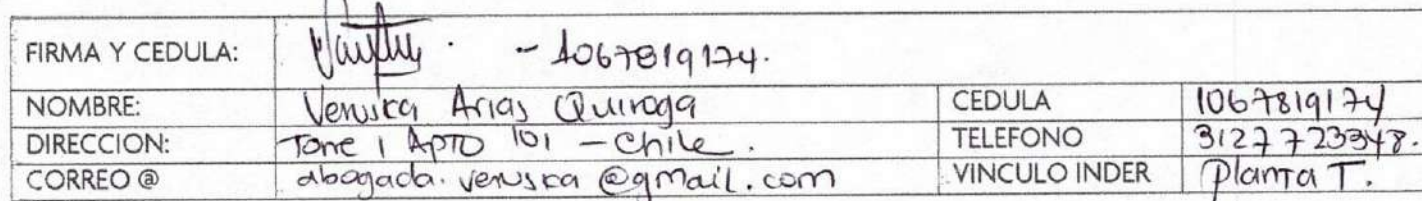 FIRMA Y CEDULA: - 1067819174.
NOMBRE: Veruska Arias Quiroga CEDULA 1067819174
DIRECCION: Torre 1 APTO 101 - Chile. TELEFONO 3127723348.
CORREO @ abogada.veruska@gmail.com VINCULO INDER Planta T.